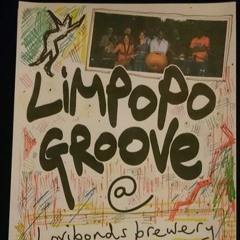 LiMPOPO
GROOVE
@
Lovibonds brewery